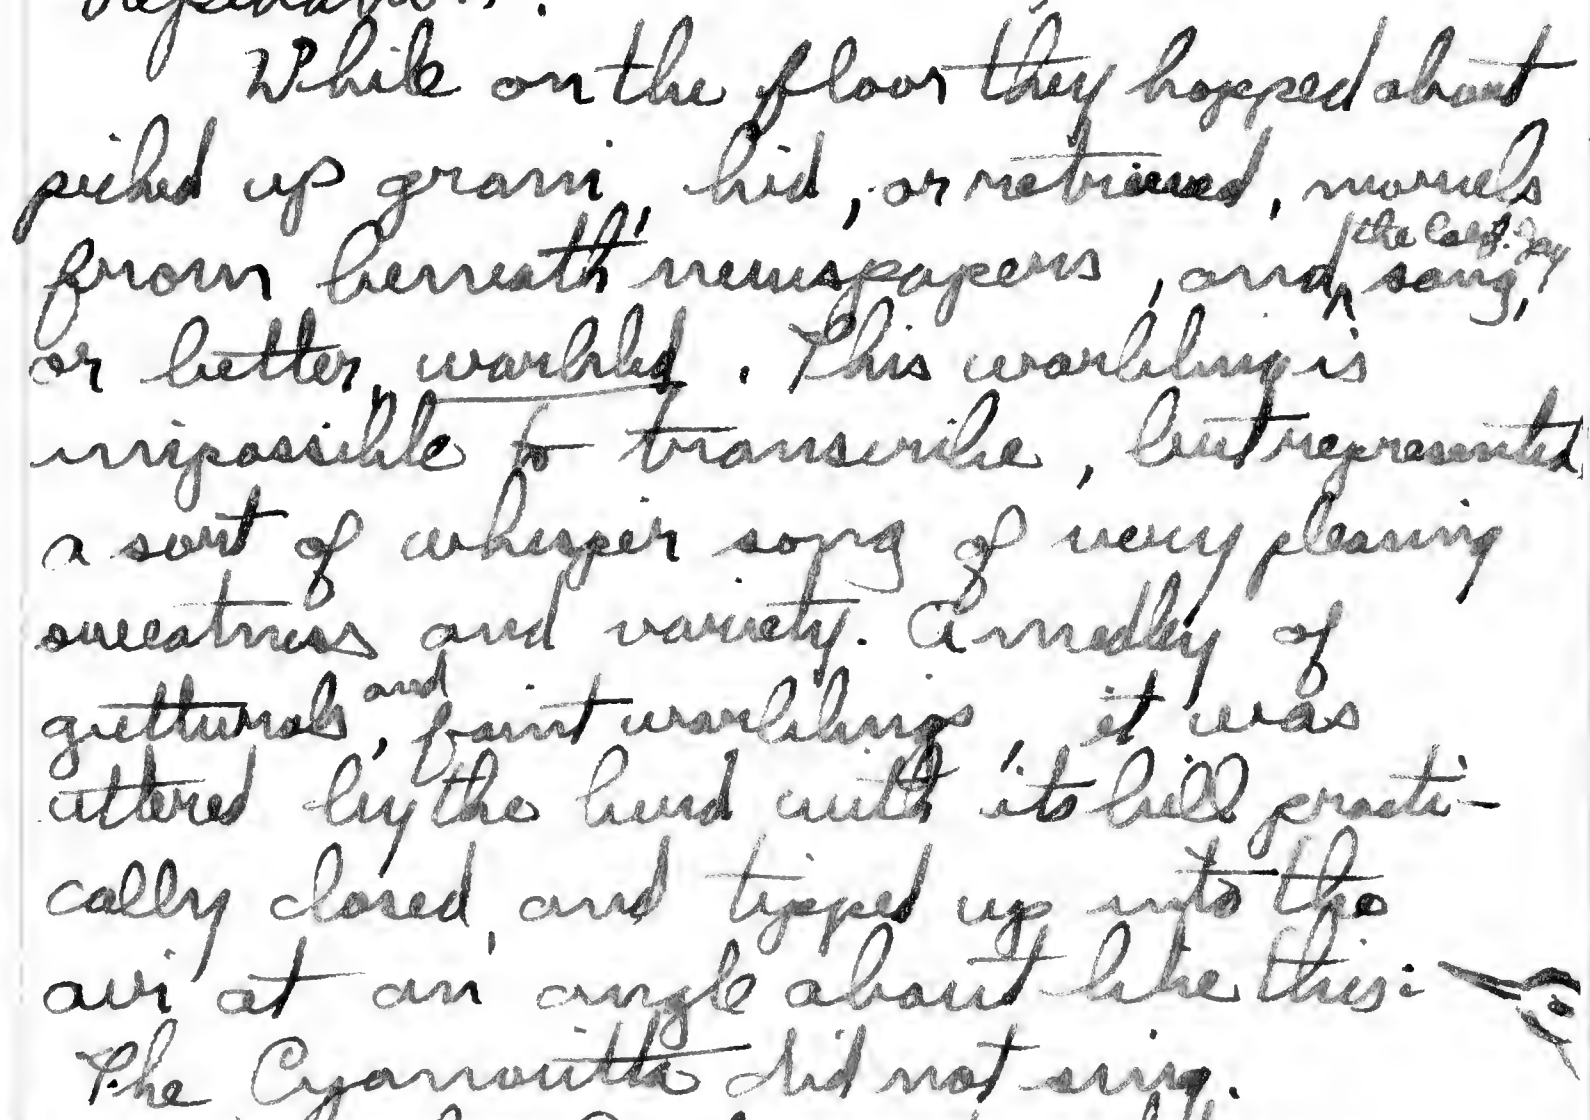 While on the floor they hopped about
picked up grain, hid, or retrieved, morsels
from beneath newspapers, and the Calif. Jay sang,
or better, warbled. This warbling is
impossible to transcribe, but represented
a sort of whisper song of very pleasing
sweetness and variety. A medley of
gutturals, and faint warblings, it was
uttered by the bird with its bill practi-
cally closed, and tipped up into the
air at an angle about like this:
The Cyanocitta did not sing.